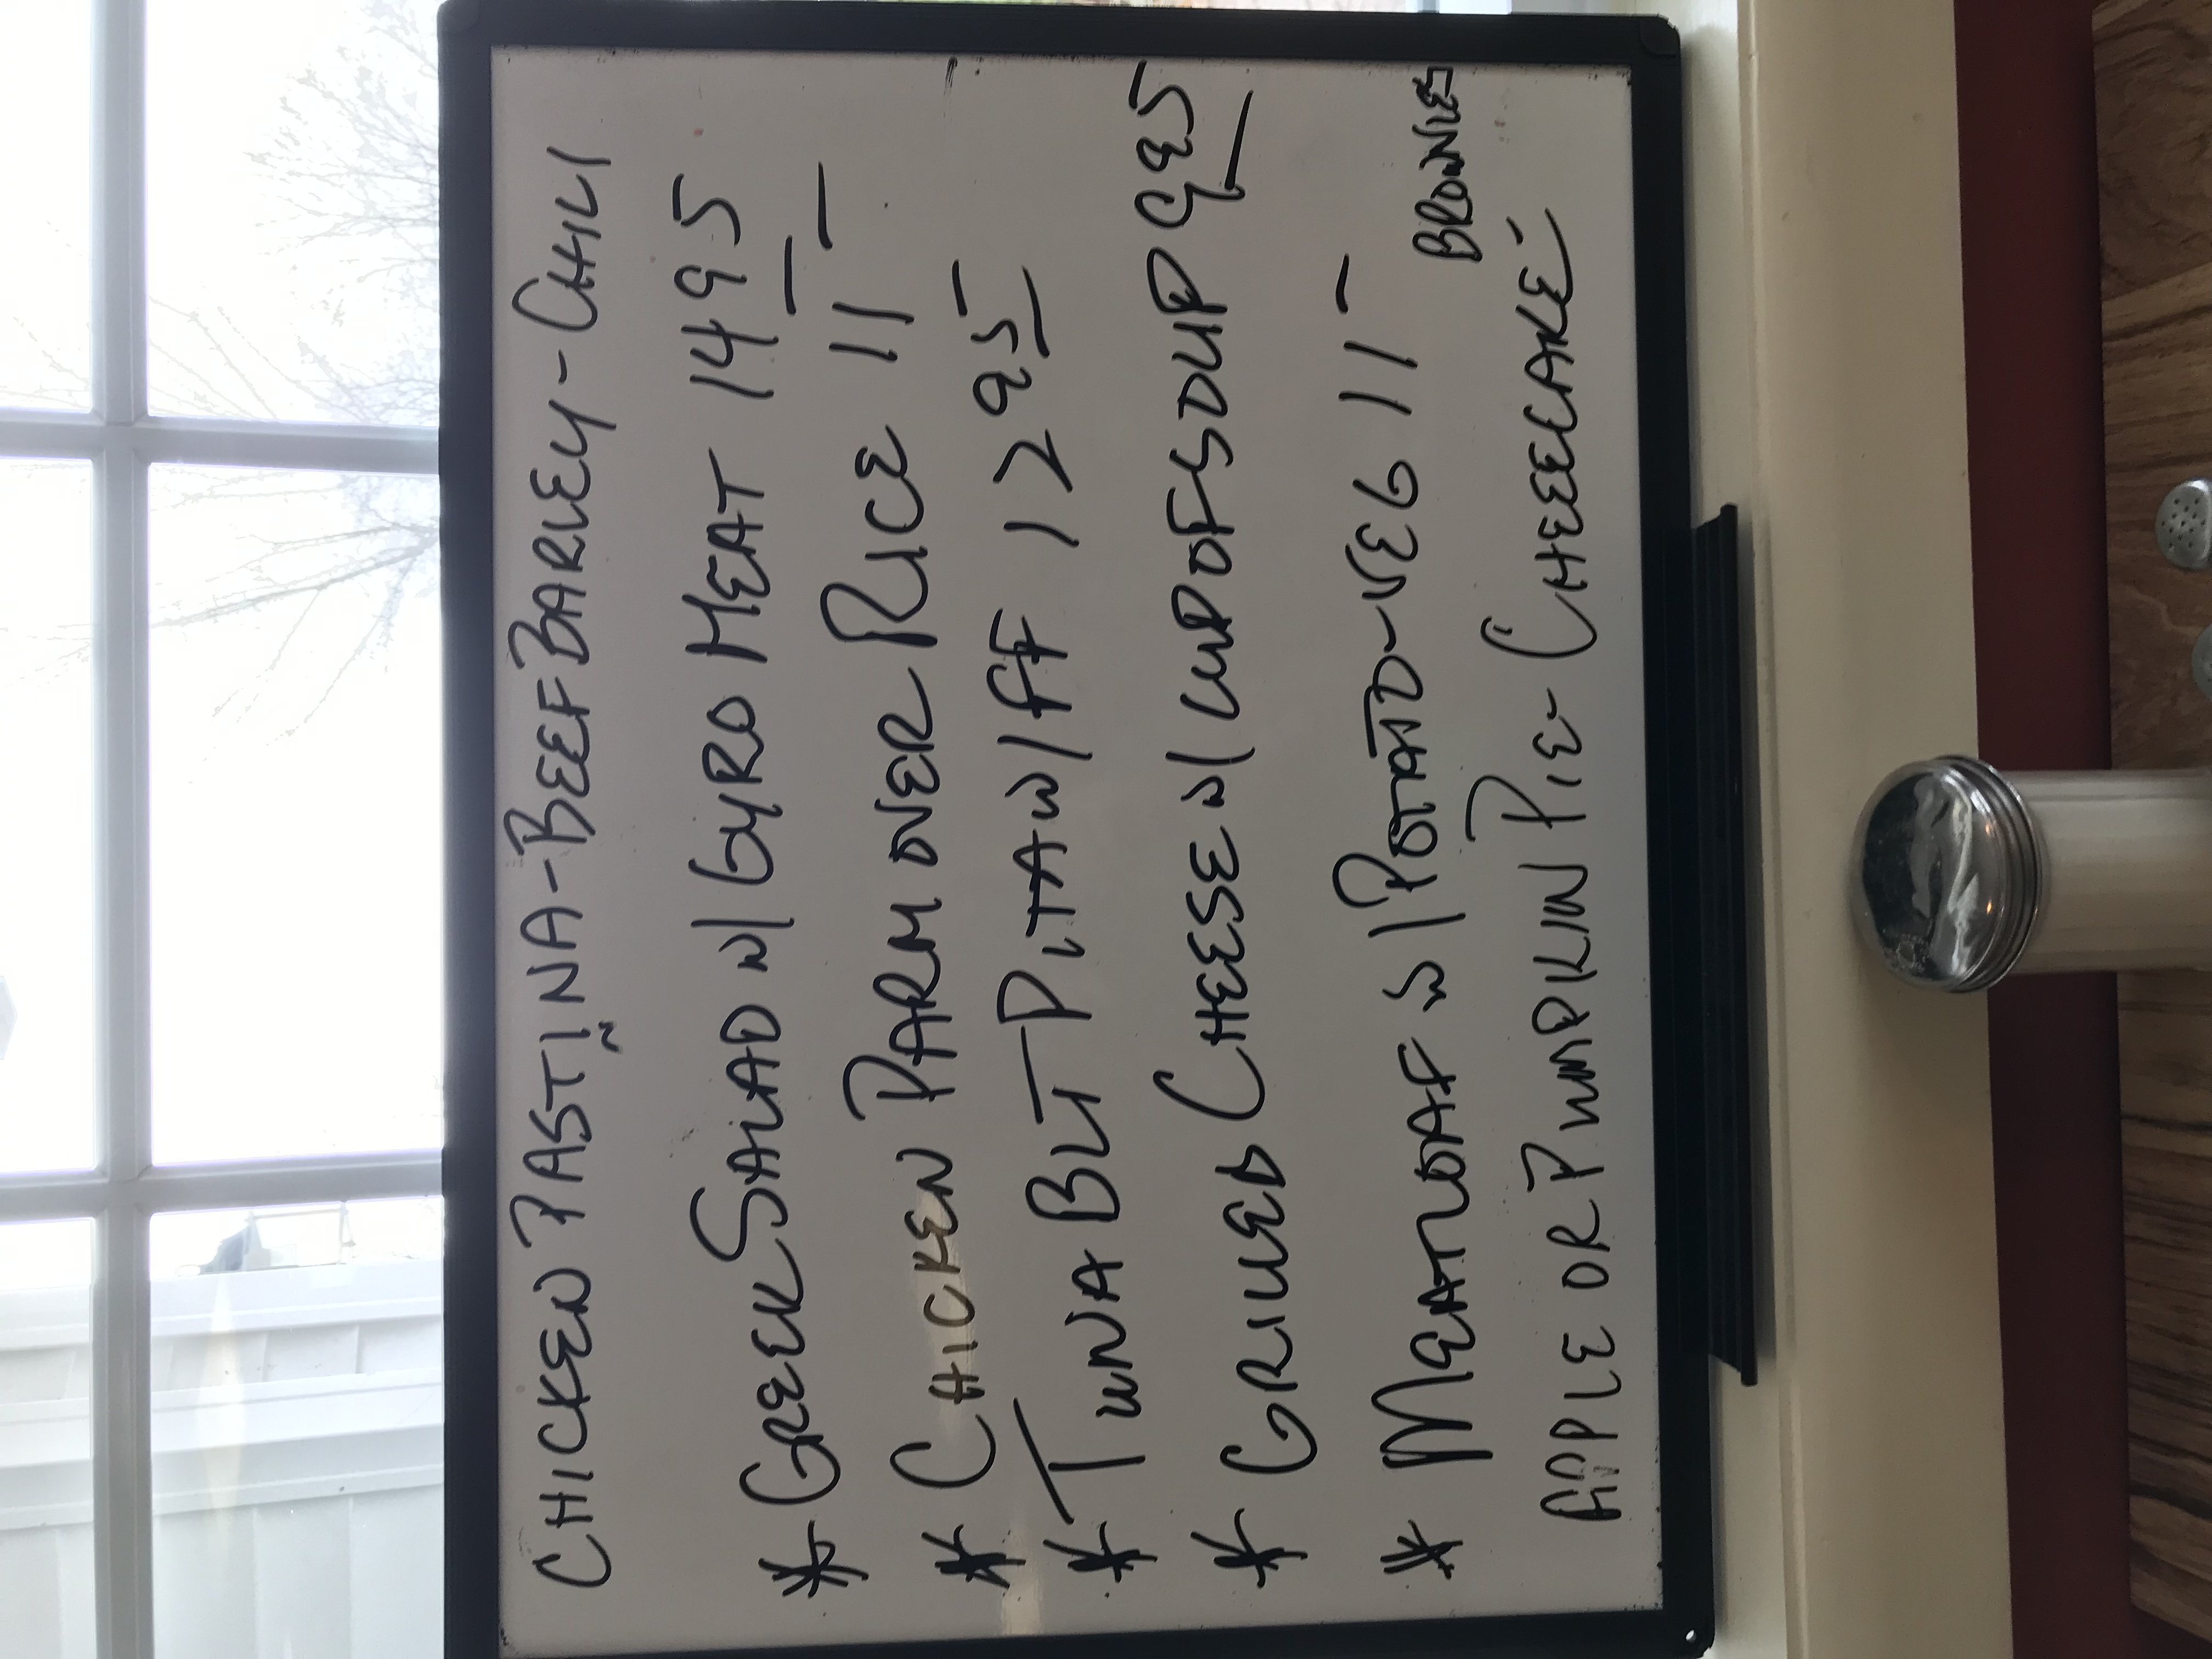 CHICKEN PASTINA - BEEF BARLEY - CHILI
* GREEK SALAD W/ GYRO MEAT 14 95
* CHICKEN PARM OVER RICE 11 —
* TUNA BLT PITA W/ FF 12 95
* GRILLED CHEESE W/ CUP OF SOUP 9 95
* MEATLOAF W/ POTATO - VEG 11 —
BROWNIE
APPLE OR PUMPKIN PIE - CHEESECAKE